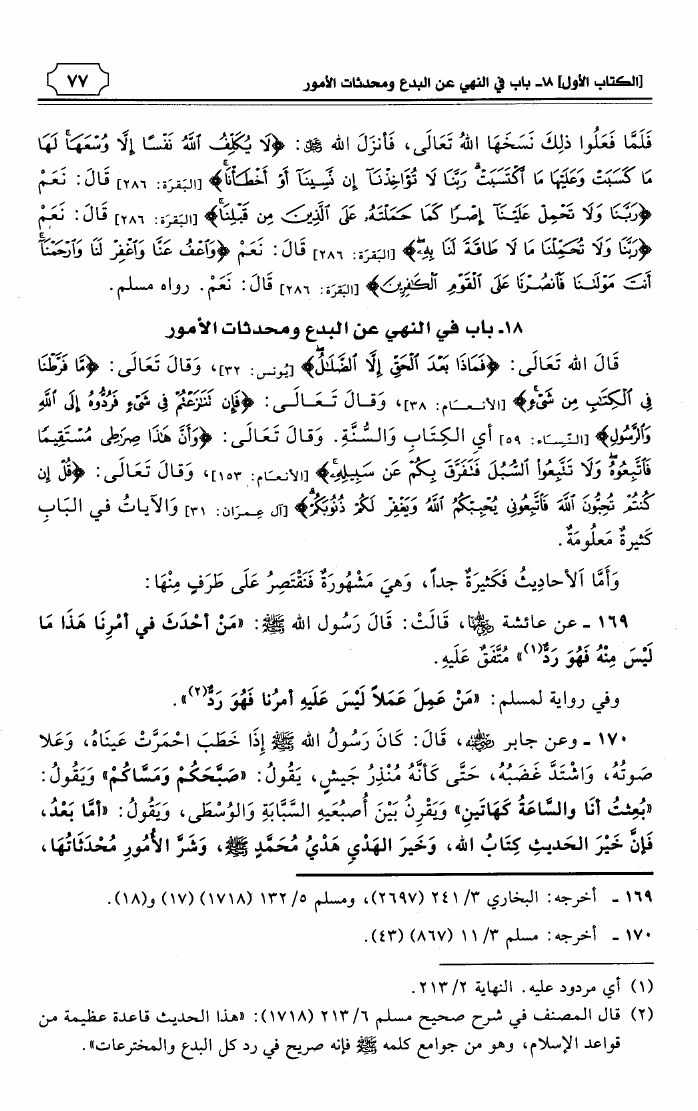 [الكتاب الأول] ١٨ـ باب في النهي عن البدع ومحدثات الأمور
٧٧
فَلَمَّا فَعَلُوا ذلِكَ نَسَخَهَا اللهُ تَعَالَى، فَأنزَلَ الله ﷻ: ﴿لَا يُكَلِّفُ ٱللَّهُ نَفْسًا إِلَّا وُسْعَهَاۚ لَهَا
مَا كَسَبَتْ وَعَلَيْهَا مَا ٱكْتَسَبَتْۗ رَبَّنَا لَا تُؤَاخِذْنَآ إِن نَّسِينَآ أَوْ أَخْطَأْنَاۚ﴾ [البَقَرَة: ٢٨٦] قَالَ: نَعَمْ
﴿رَبَّنَا وَلَا تَحْمِلْ عَلَيْنَآ إِصْرًا كَمَا حَمَلْتَهُۥ عَلَى ٱلَّذِينَ مِن قَبْلِنَاۚ﴾ [البَقَرَة: ٢٨٦] قَالَ: نَعَمْ
﴿رَبَّنَا وَلَا تُحَمِّلْنَا مَا لَا طَاقَةَ لَنَا بِهِۦۖ﴾ [البَقَرَة: ٢٨٦] قَالَ: نَعَمْ ﴿وَٱعْفُ عَنَّا وَٱغْفِرْ لَنَا وَٱرْحَمْنَآۚ
أَنتَ مَوْلَىٰنَا فَٱنصُرْنَا عَلَى ٱلْقَوْمِ ٱلْكَٰفِرِينَ﴾ [البَقَرَة: ٢٨٦] قَالَ: نَعَمْ. رواه مسلم.
١٨ـ باب في النهي عن البدع ومحدثات الأمور
قَالَ الله تَعَالَى: ﴿فَمَاذَا بَعْدَ ٱلْحَقِّ إِلَّا ٱلضَّلَٰلُۖ﴾ [يُونس: ٣٢]، وَقَالَ تَعَالَى: ﴿مَّا فَرَّطْنَا
فِي ٱلْكِتَٰبِ مِن شَيْءٍۚ﴾ [الأنعَام: ٣٨]، وَقَالَ تَعَالَى: ﴿فَإِن تَنَٰزَعْتُمْ فِي شَيْءٍ فَرُدُّوهُ إِلَى ٱللَّهِ
وَٱلرَّسُولِ﴾ [النِّسَاء: ٥٩] أي الكِتَابِ وَالسُّنَّةِ. وَقَالَ تَعَالَى: ﴿وَأَنَّ هَٰذَا صِرَٰطِي مُسْتَقِيمًا
فَٱتَّبِعُوهُۖ وَلَا تَتَّبِعُوا۟ ٱلسُّبُلَ فَتَفَرَّقَ بِكُمْ عَن سَبِيلِهِۦۚ﴾ [الأنعَام: ١٥٣]، وَقَالَ تَعَالَى: ﴿قُلْ إِن
كُنتُمْ تُحِبُّونَ ٱللَّهَ فَٱتَّبِعُونِي يُحْبِبْكُمُ ٱللَّهُ وَيَغْفِرْ لَكُمْ ذُنُوبَكُمْۗ﴾ [آل عِمرَان: ٣١] وَالآيَاتُ في البَابِ
كَثيرةٌ مَعلُومَةٌ.
وَأَمَّا الأحَاديثُ فَكَثيرَةٌ جداً، وَهيَ مَشْهُورَةٌ فَنَقْتَصِرُ عَلَى طَرَفٍ مِنْهَا:
١٦٩ ـ عن عائشة رضي الله عنها، قَالَتْ: قَالَ رَسُول الله ﷺ: «مَنْ أحْدَثَ في أمْرِنَا هَذَا مَا
لَيْسَ مِنْهُ فَهُوَ رَدٌّ(١)» مُتَّفَقٌ عَلَيهِ.
وفي رواية لمسلم: «مَنْ عَمِلَ عَمَلاً لَيْسَ عَلَيهِ أمرُنا فَهُوَ رَدٌّ(٢)».
١٧٠ ـ وعن جابر رضي الله عنه، قَالَ: كَانَ رَسُولُ الله ﷺ إِذَا خَطَبَ احْمَرَّتْ عَينَاهُ، وَعَلا
صَوتُهُ، وَاشْتَدَّ غَضَبُهُ، حَتَّى كَأنَّهُ مُنْذِرُ جَيشٍ، يَقُولُ: «صَبَّحَكُمْ وَمَسَّاكُمْ» وَيَقُولُ:
«بُعِثتُ أنَا والسَّاعَةُ كَهَاتَينِ» وَيَقْرِنُ بَيْنَ أُصبُعَيهِ السَّبَّابَةِ وَالوُسْطَى، وَيَقُولُ: «أمَّا بَعْدُ،
فَإنَّ خَيْرَ الحَديثِ كِتَابُ الله، وَخَيرَ الهَدْيِ هَدْيُ مُحَمَّدٍ ﷺ، وَشَرَّ الأُمُورِ مُحْدَثَاتُهَا،
١٦٩ ـ أخرجه: البخاري ٣/ ٢٤١ (٢٦٩٧)، ومسلم ٥/ ١٣٢ (١٧١٨) (١٧) و(١٨).
١٧٠ ـ أخرجه: مسلم ٣/ ١١ (٨٦٧) (٤٣).
(١) أي مردود عليه. النهاية ٢/ ٢١٣.
(٢) قال المصنف في شرح صحيح مسلم ٦/ ٢١٣ (١٧١٨): «هذا الحديث قاعدة عظيمة من
قواعد الإسلام، وهو من جوامع كلمه ﷺ فإنه صريح في رد كل البدع والمخترعات».